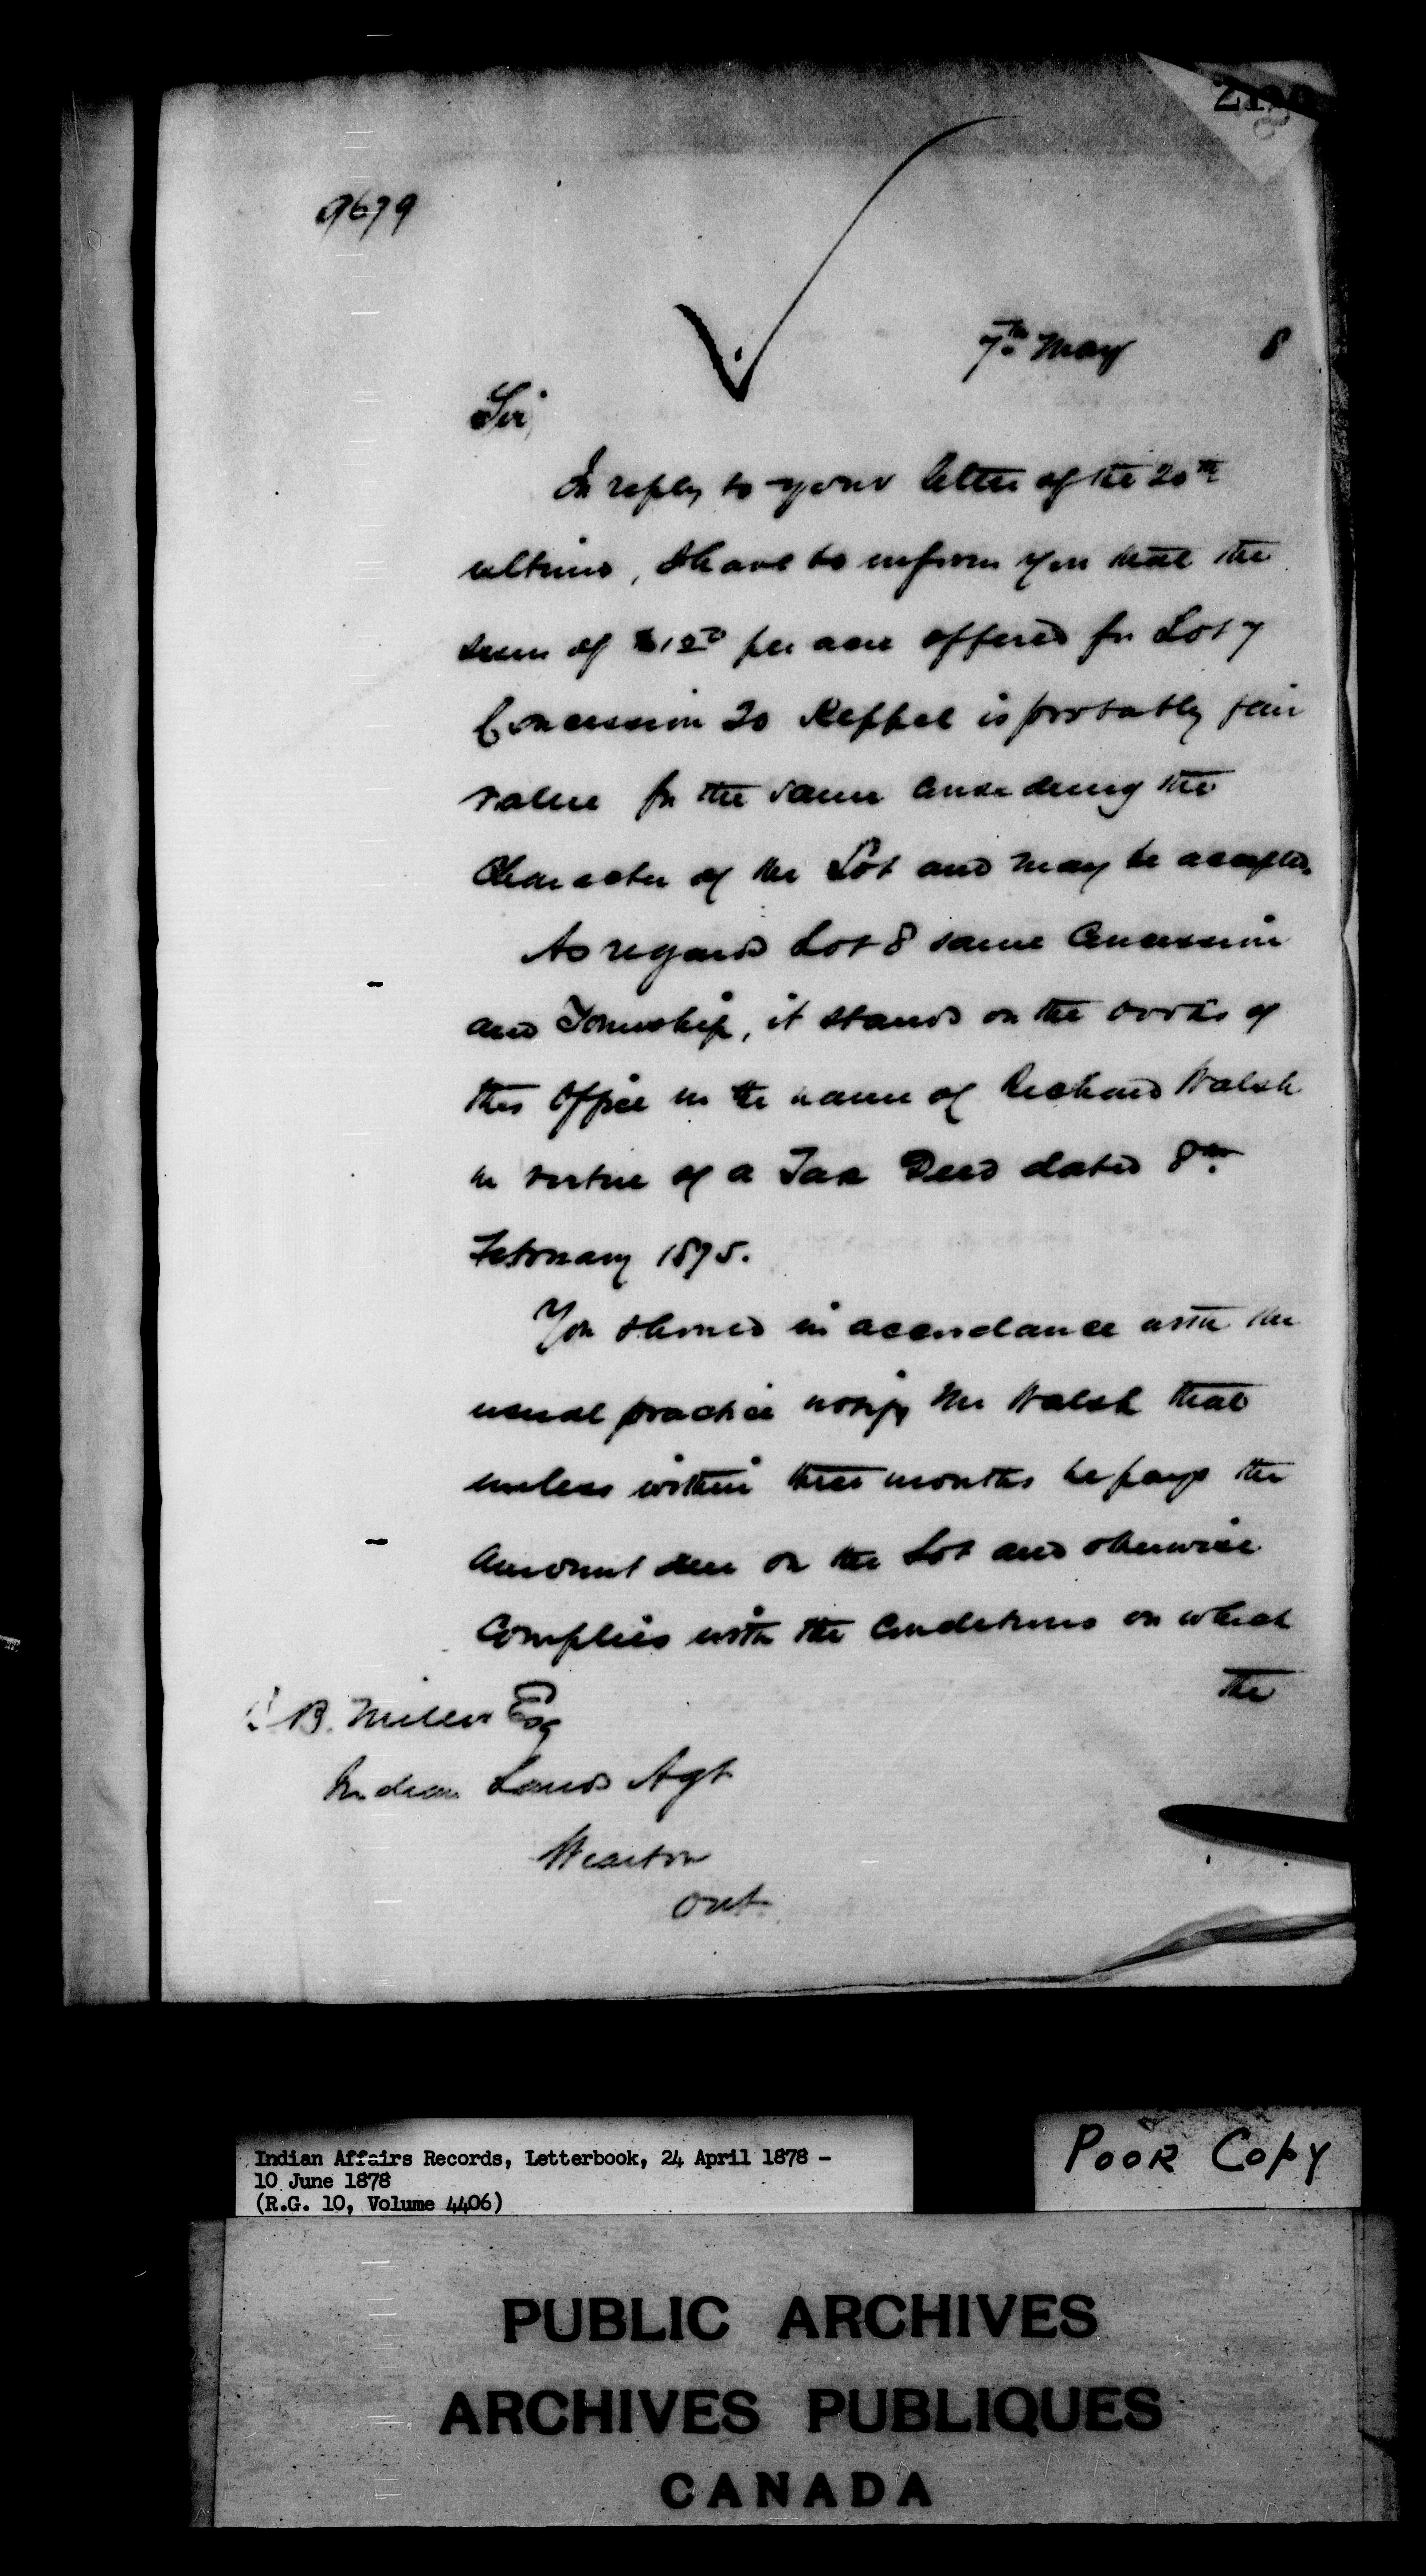 9679
7th May 8
Sir,
In reply to your letter of the 20th
ultimo, I have to inform you that the
sum of $1 per acre offered for Lot 7
Concession 20 Keppel is probably fair
value for the same considering the
character of the Lot and may be accepted.
As regards Lot 8 same Concession
and Township, it stands on the books of
this Office in the name of Richard Walsh
in virtue of a Tax Deed dated 8th
February 1875.
You should in accordance with the
usual practice notify Mr Walsh that
unless within three months he pays the
amount due on the Lot and otherwise
complies with the conditions on which
the
B. Miller Esq
Indian Lands Agt
Wiarton
Ont.
Indian Affairs Records, Letterbook, 24 April 1878 -
10 June 1878
(R.G. 10, Volume 4406)
Poor Copy
PUBLIC ARCHIVES
ARCHIVES PUBLIQUES
CANADA